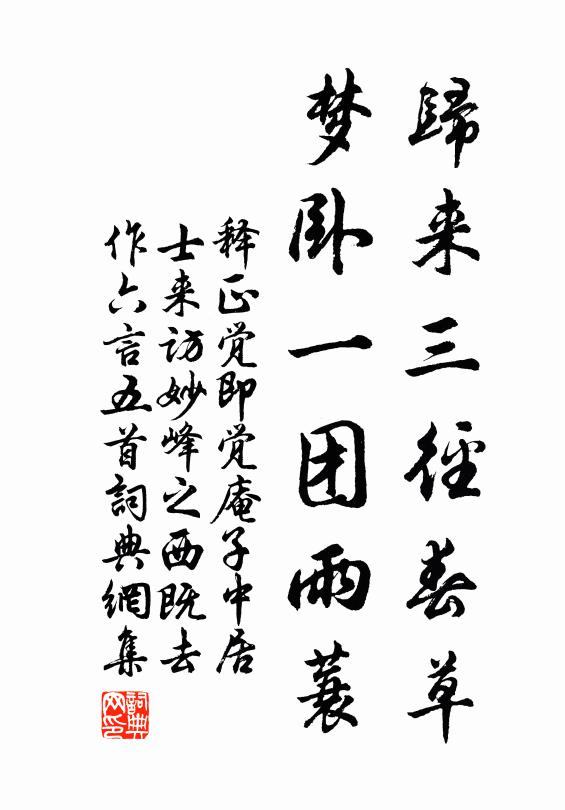 歸来三徑春草
梦卧一团雨蓑
释正觉即觉庵子中居
士来访妙峰之西既去
作六言五首詞典網集
詞典
网印